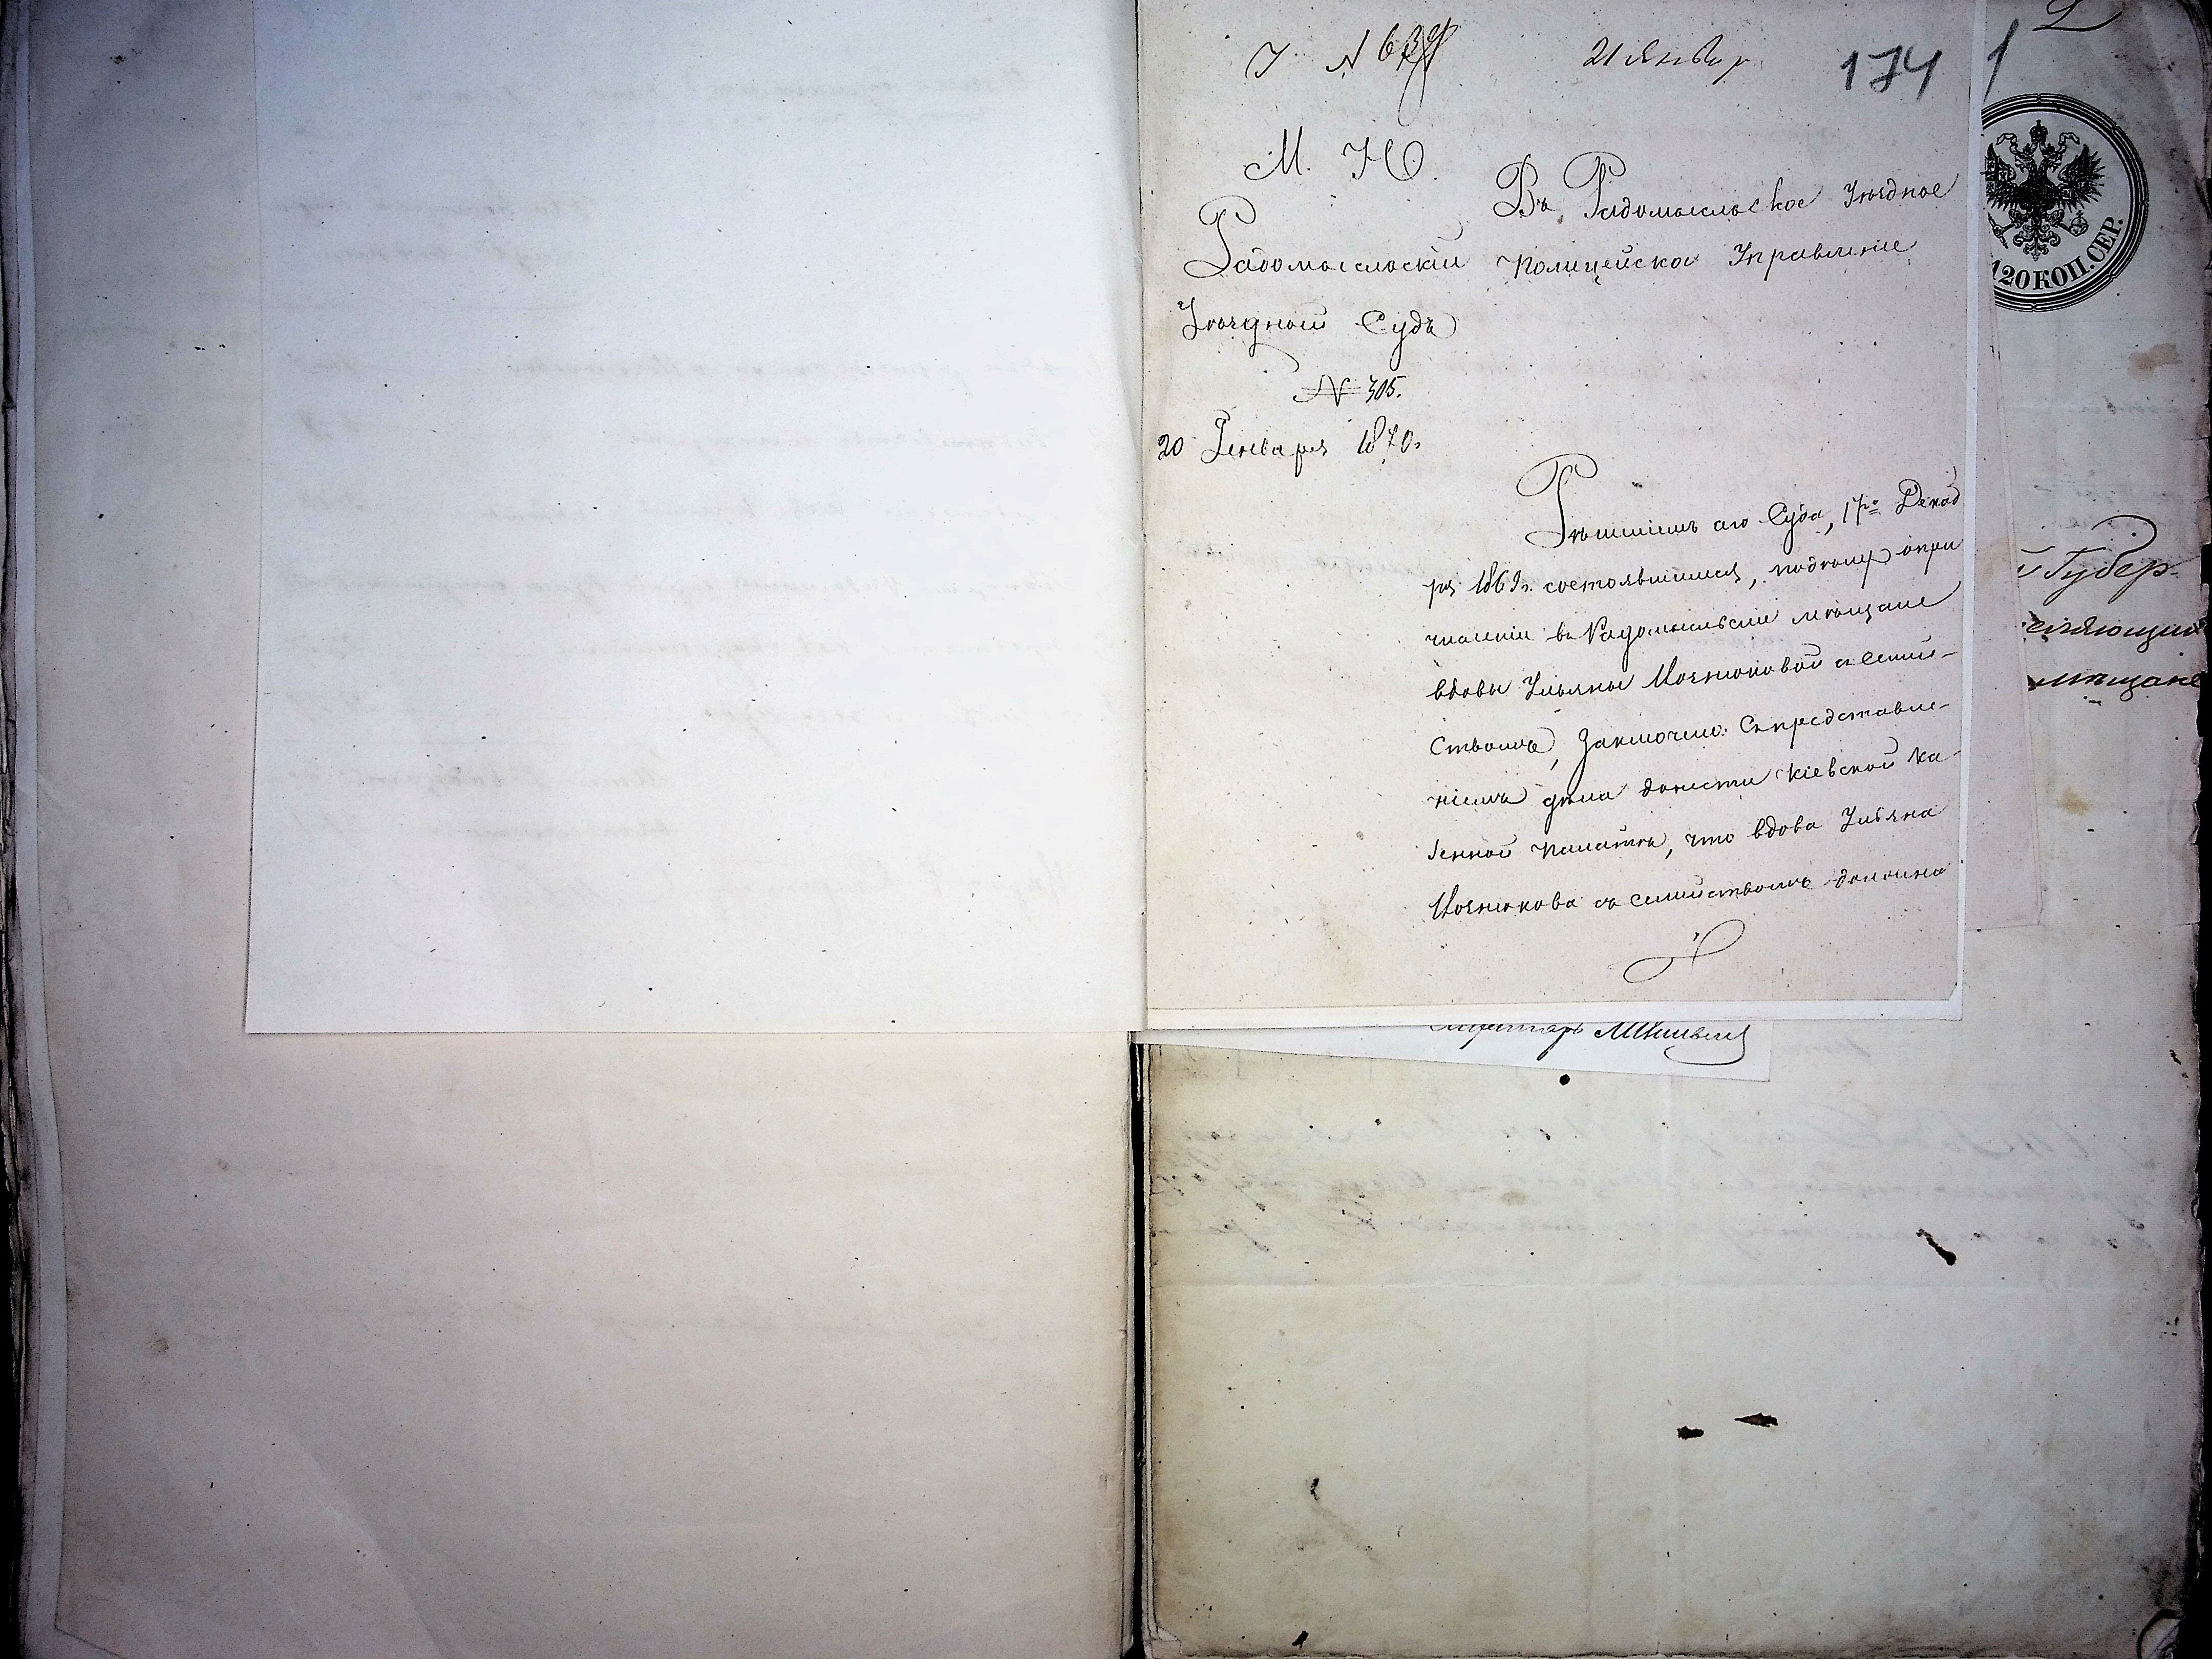 У № 637
21 Январ
174
М. Ю.
Радомысльскій
Уѣздный Судъ
№ 305.
20 Генваря 1870 г
Въ Радомысльское Уѣздное
Полицейское Управленіе
Рѣшеніемъ сего Суда, 17го Декаб
ря 1869 г. состоявшимся, по дѣлу о при
численіи въ Радомысльскіе мѣщане
вдовы Ульяны Моснюковой съ семей-
ствомъ, заключено: Съ представле-
ніемъ дѣла донести Кіевской Ка-
зенной Палатѣ, что вдова Ульяна
Моснюкова съ семействомъ должна
2
1
120 КОП. СЕР.
Губер-
мѣщане